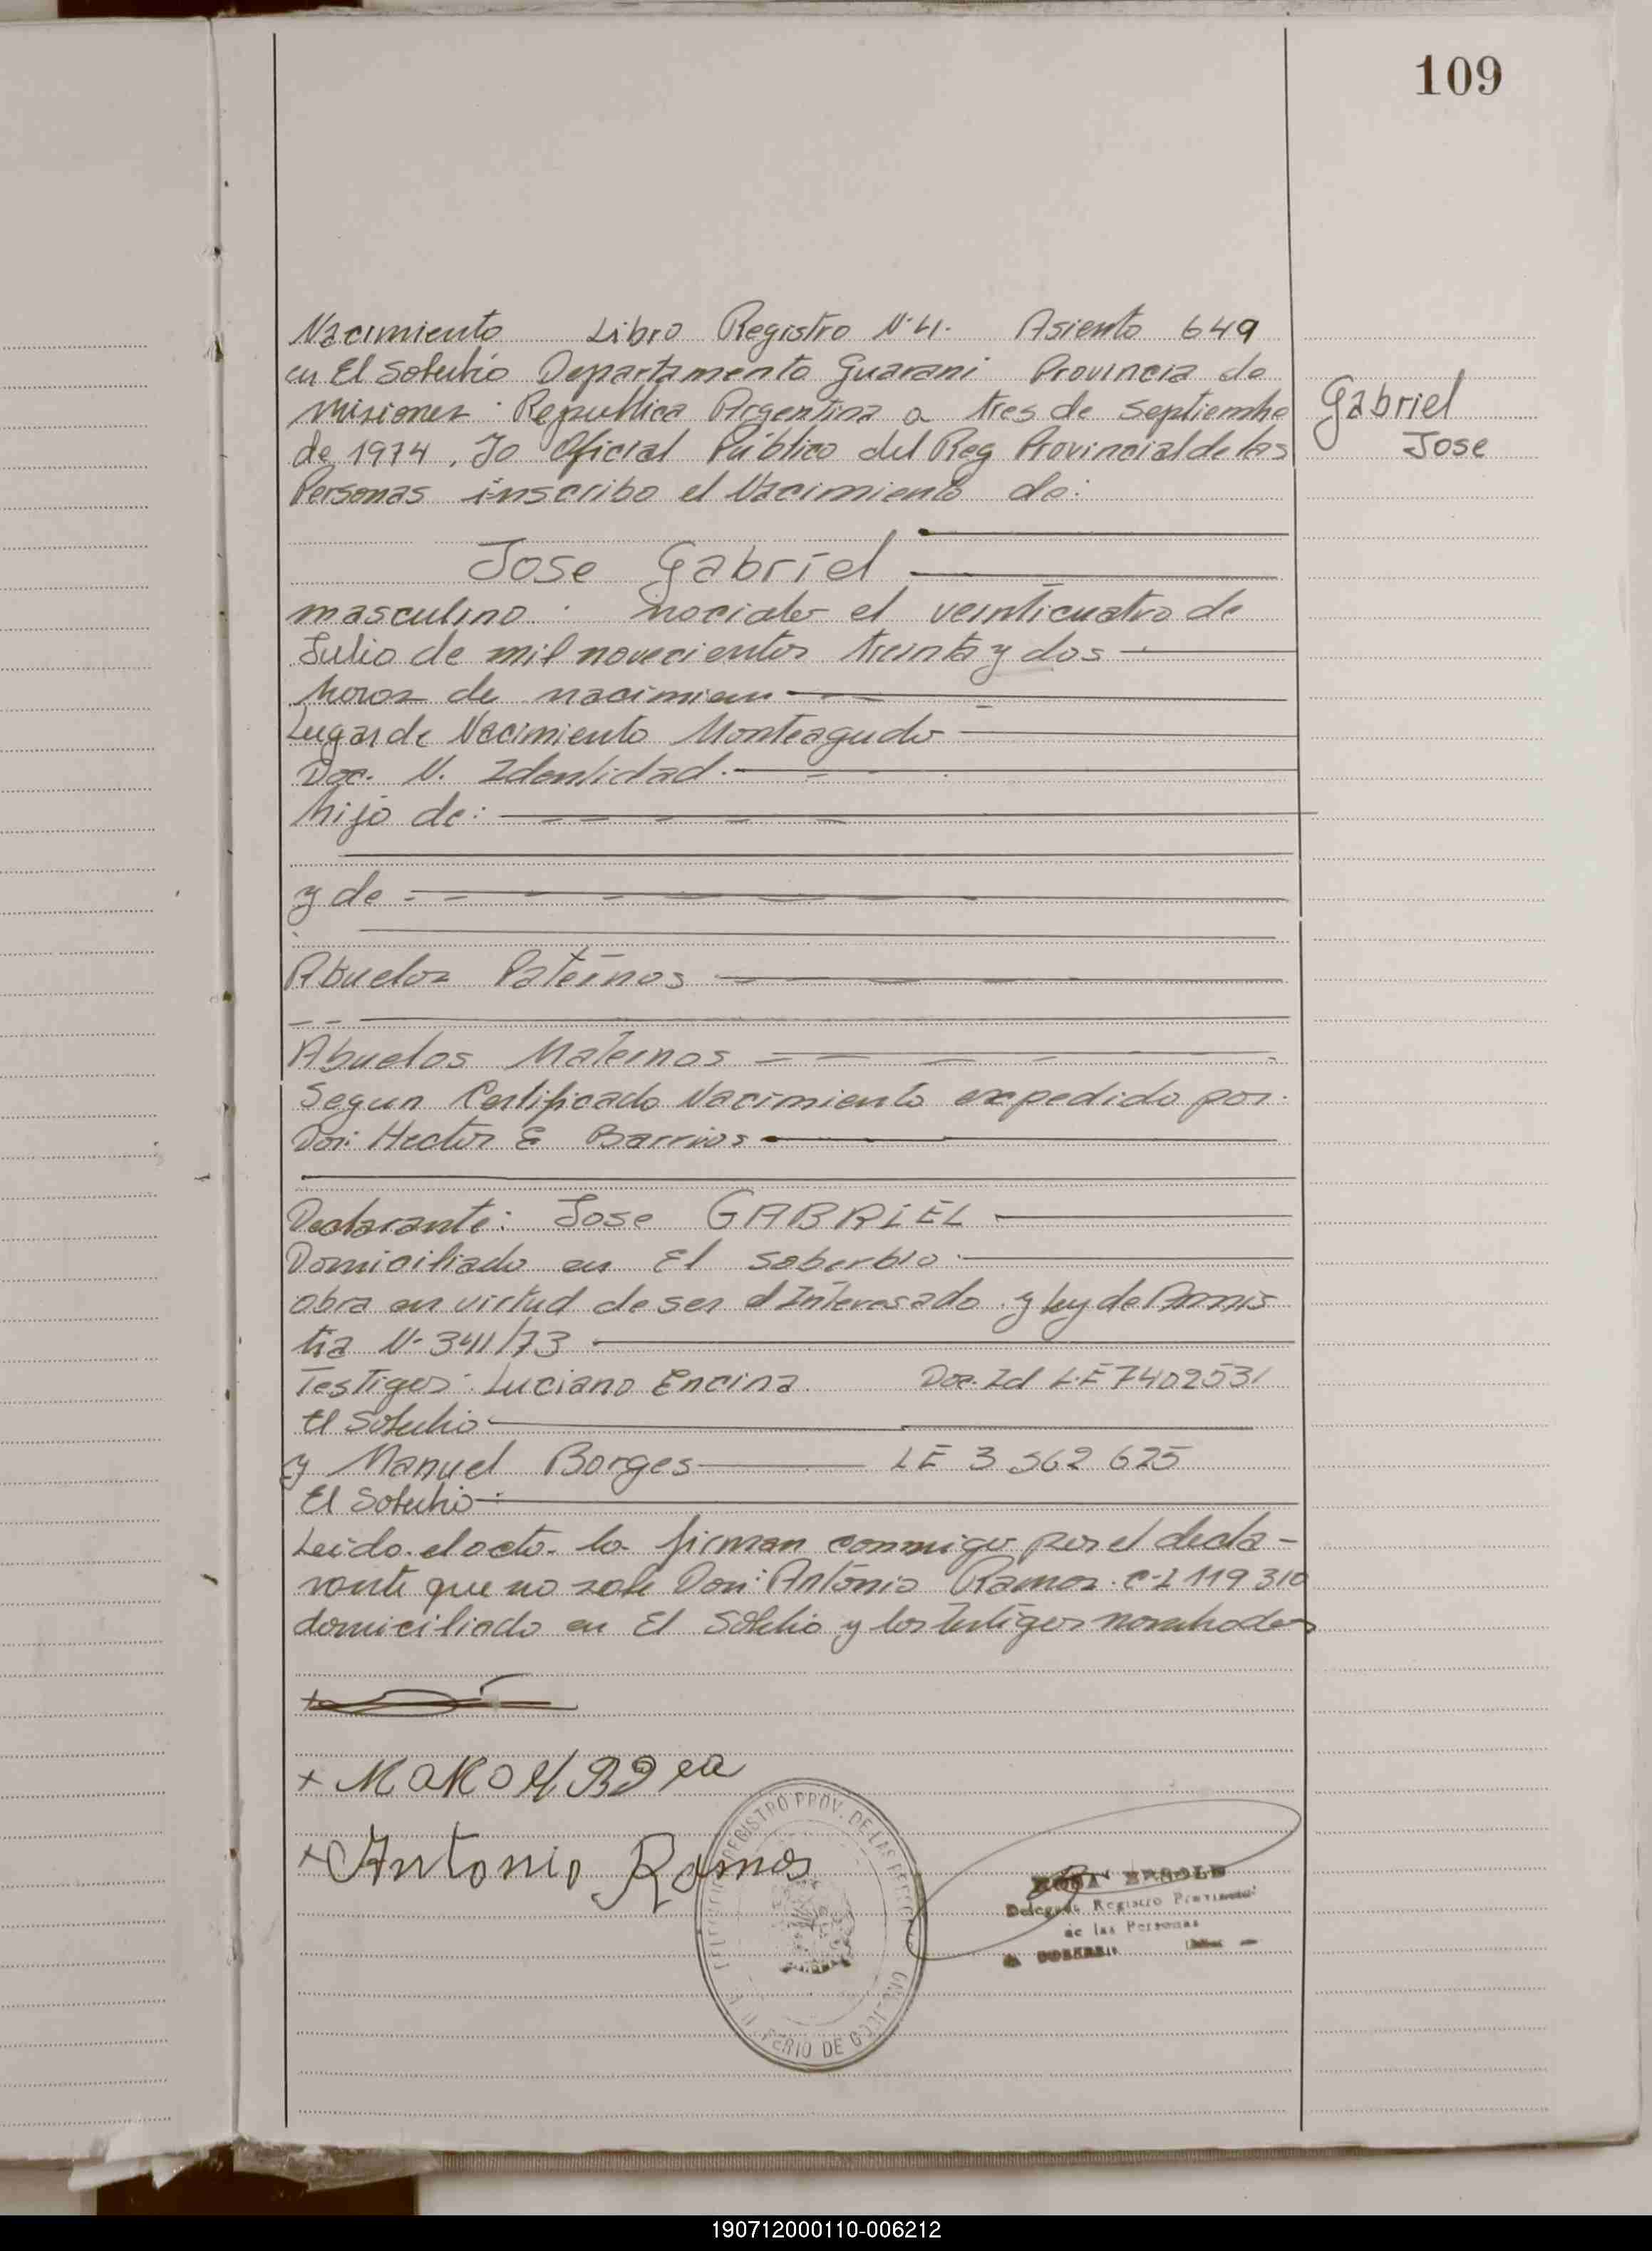 109
Nacimiento Libro Registro N° 4. Asiento 649
en El Soberbio Departamento Guarani Provincia de
Misiones. Republica Argentina a tres de septiembre
de 1974. Yo Oficial Público del Reg Provincial de las
Personas inscribo el Nacimiento de:
Gabriel
Jose
Jose Gabriel
masculino. nacido el veinticuatro de
Julio de mil novecientos treinta y dos
horas de nacimien
Lugar de Nacimiento Monteagudo
Doc. N. Identidad.
hijo de:
y de
Abuelos Paternos
Abuelos Maternos
Segun Certificado Nacimiento expedido por.
Don: Hector E Barrios
Declarante: Jose GABRIEL
Domiciliado en El Soberbio.
obra en virtud de ser el Interesado y ley de Amnis
tia N- 3411/73
Testigos: Luciano Encina. Doc. Id L.E 7402531
El Soberbio
y Manuel Borges LE 3 562 625
El Soberbio
Leido el acto lo firman conmigo por el decla-
rante que no sabe Don: Antonio Ramos. C-I 119 310
domiciliado en El Soberbio y los testigos nombrados
+
+
+ Antonio Ramos
REGISTRO PROV. DE LAS
DE
Delegado Registro Provincial
de las Personas
190712000110-006212